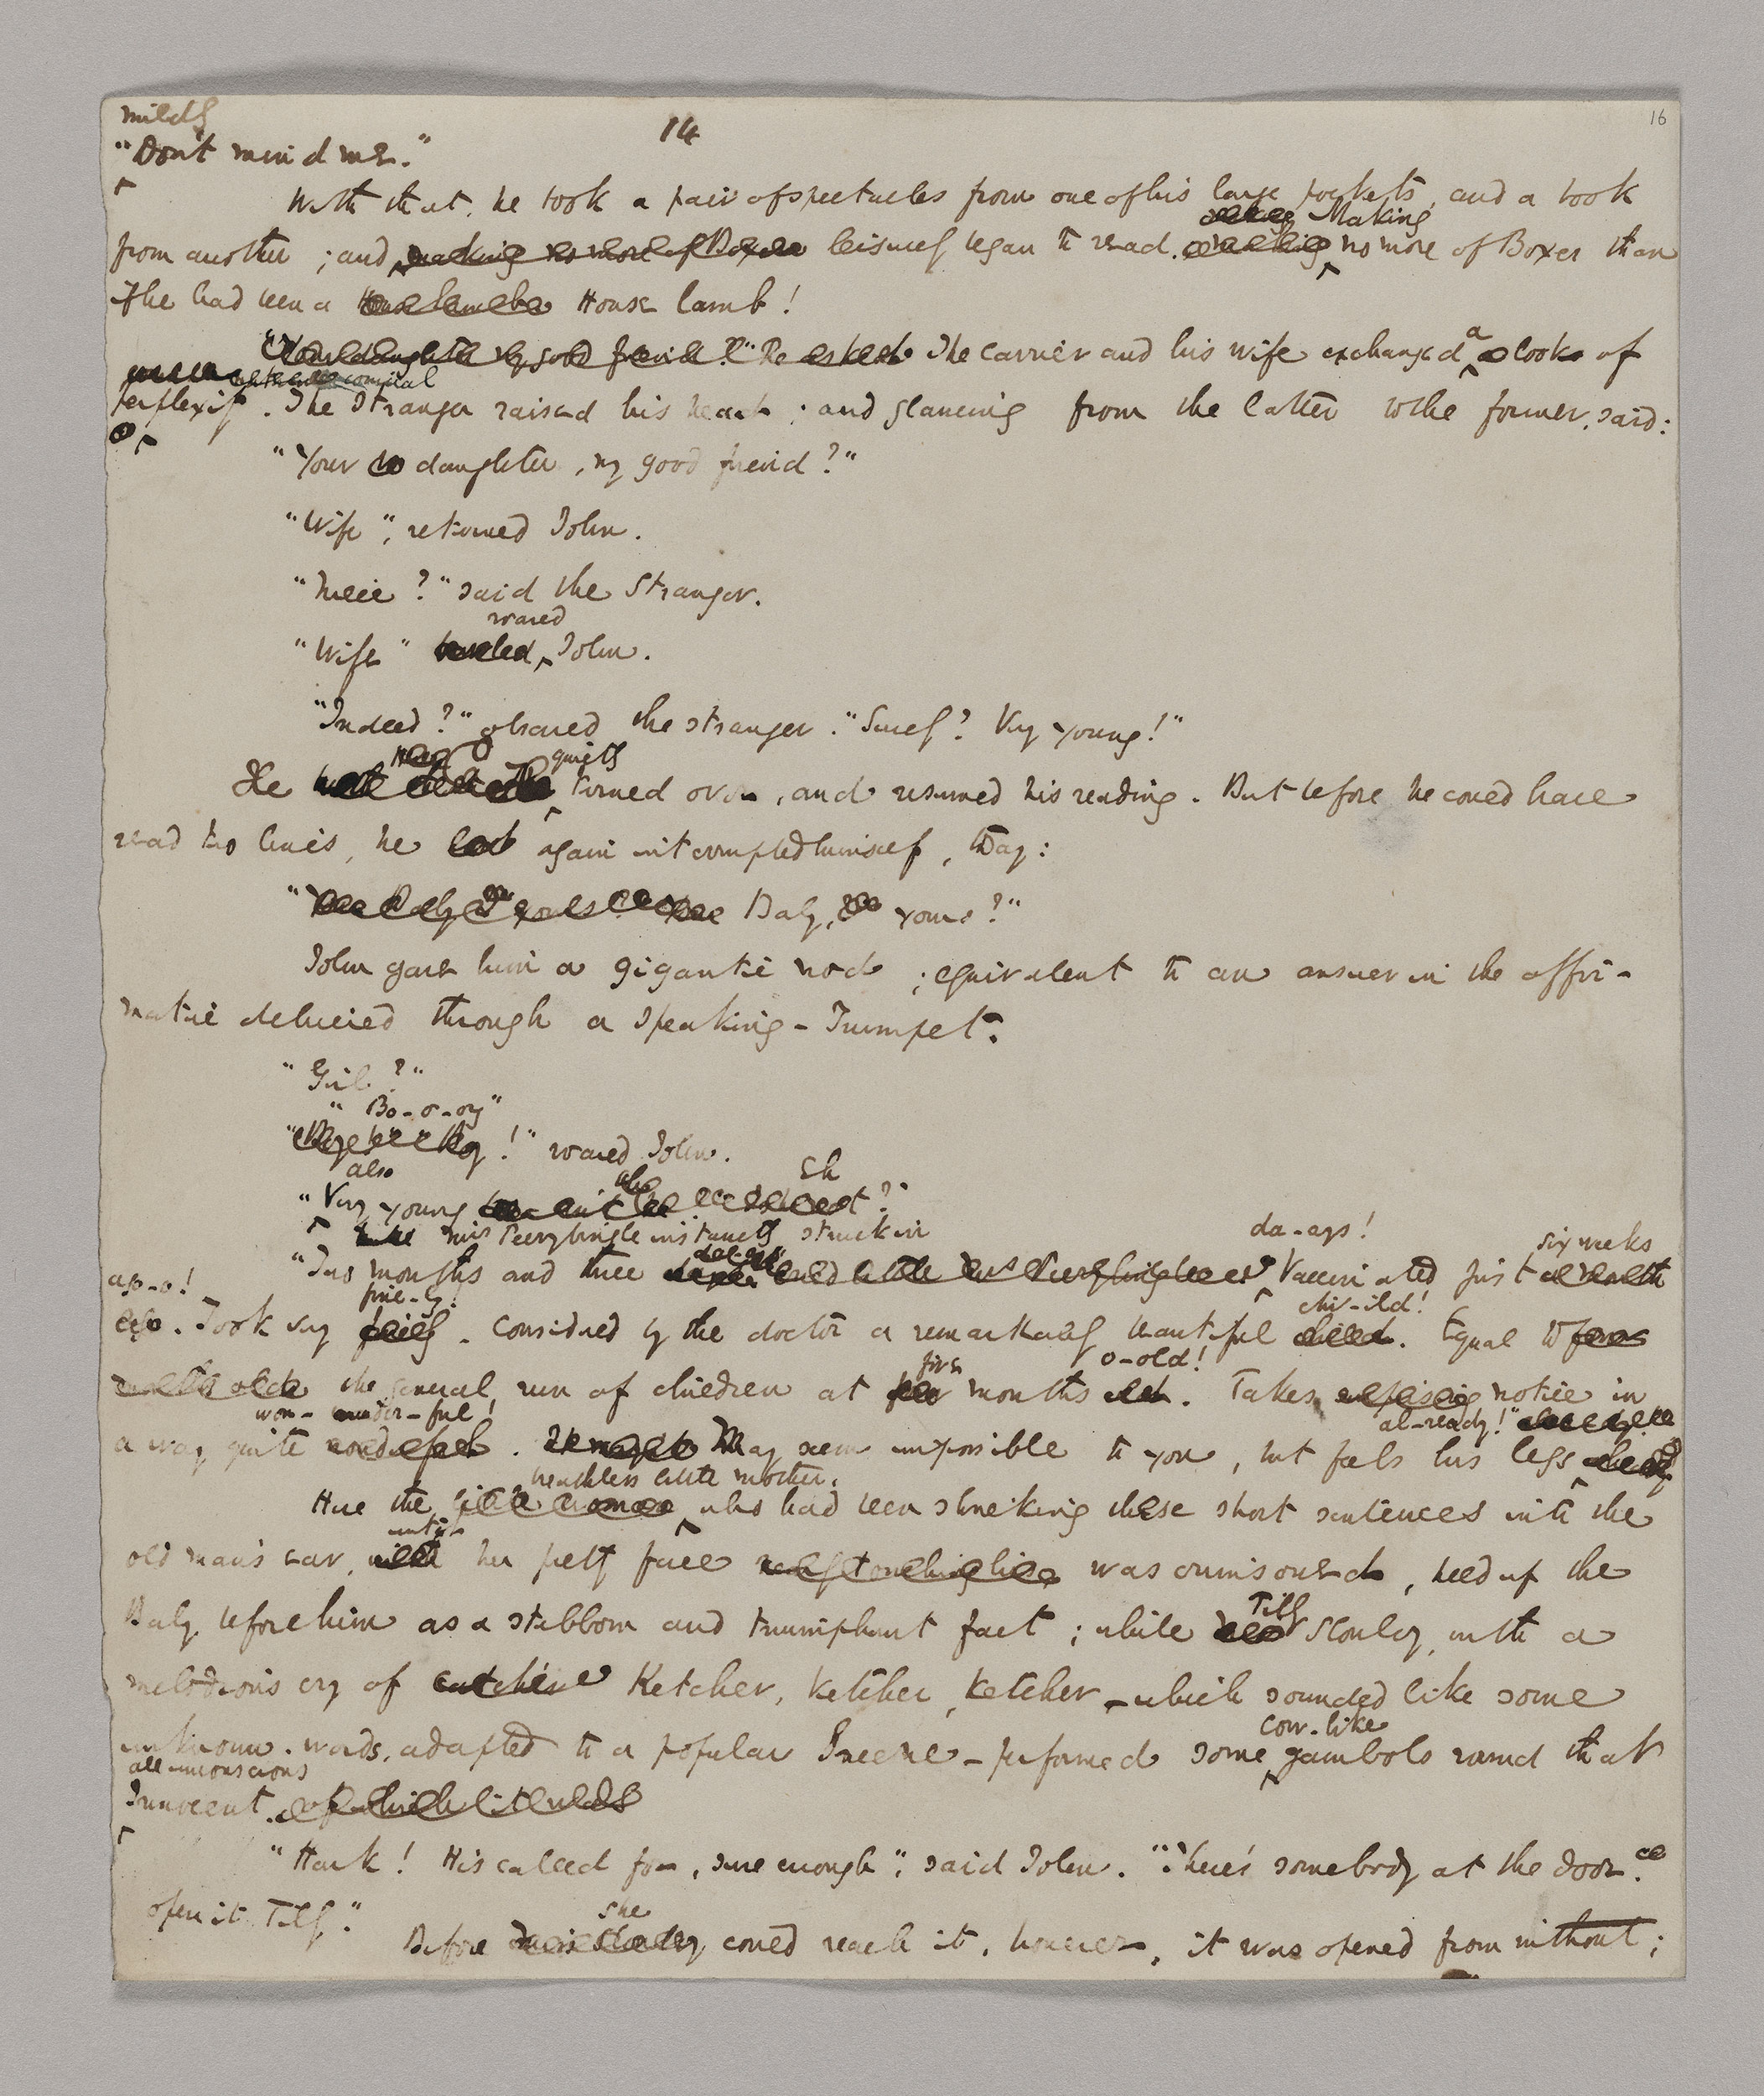 mildly
14
16
"Don't mind me."
With that, he took a pair of spectacles from one of his large pockets, and a book
Making
from another; and making no more of Boxer leisurely began to read. making no more of Boxer than
if he had been a House lamb House lamb!
"Your daughter my good friend?" he asked The Carrier and his wife exchanged a look of
perplexity. The Stranger raised his head; and glancing from the latter to the former, said:
"Your daughter, my good friend?"
"Wife", returned John.
"Niece?" said the Stranger.
roared
"Wife" John.
"Indeed?" observed the stranger. "Surely? Very young!"
quietly
He turned over, and resumed his reading. But before he could have
read two lines, he again interrupted himself, to say:
" Baby, yours?"
John gave him a gigantic nod; equivalent to an answer in the affir-
mative delivered through a speaking-Trumpet.
"Girl?"
"Bo-o-oy"
!" roared John.
also Eh
"Very young ?"
Mrs Peerybingle instantly struck in
da-ays! six weeks
"Two months and three Vaccinated just a month
ago-o! fine-ly! chi-ild!
ago. Took very finely. Considered by the doctor a remarkably beautiful child. Equal to
five o-old!
months old the general run of children at four months old. Takes notice in
won- der-ful! al-ready!"
a way quite wonderful. May seem impossible to you, but feels his legs already
breathless little mother,
Here the little woman who had been shrieking these short sentences into the
until
old man's ear, until her pretty face was crimsoned, held up the
Tilly
Baby before him as a stubborn and triumphant fact; while Slowboy, with a
melodious cry of Ketcher, Ketcher, Ketcher – which sounded like some
cow-like
unknown words, adapted to a popular Sneeze – performed some gambols round that
all unconscious
Innocent. of which it
"Hark! He's called for, sure enough", said John. "There's somebody at the door.
open it Tilly."
she
Before Miss Slowboy could reach it, however, it was opened from without;